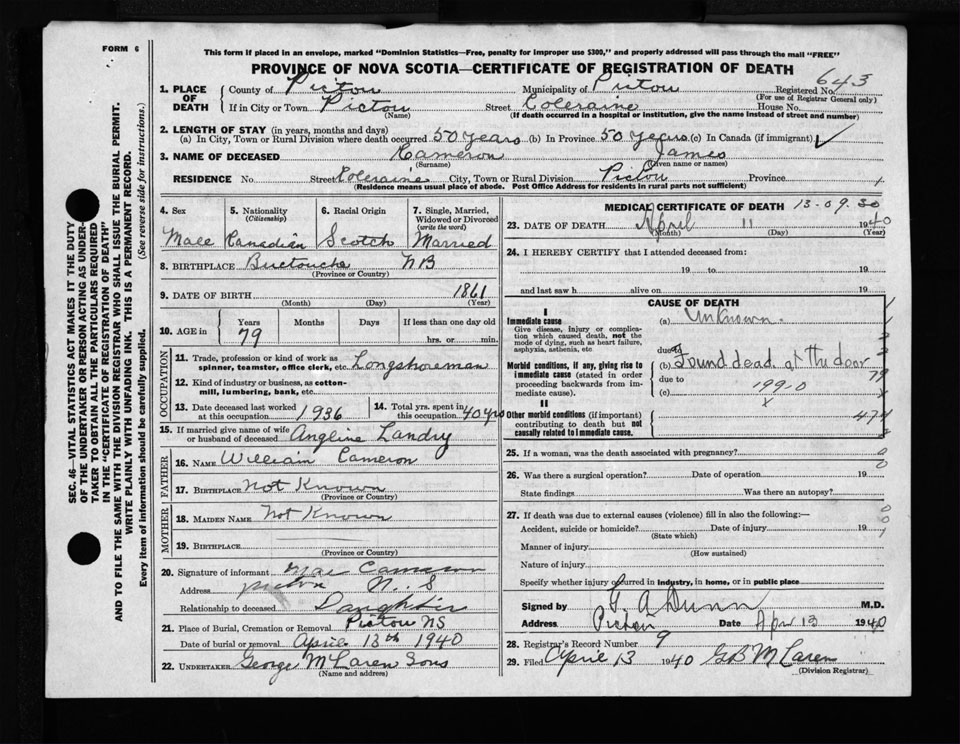 FORM 6
This form if placed in an envelope, marked "Dominion Statistics—Free, penalty for improper use $300," and properly addressed will pass through the mail "FREE"
PROVINCE OF NOVA SCOTIA—CERTIFICATE OF REGISTRATION OF DEATH
SEC. 46—VITAL STATISTICS ACT MAKES IT THE DUTY
OF THE UNDERTAKER OR PERSON ACTING AS UNDER-
TAKER TO OBTAIN ALL THE PARTICULARS REQUIRED
IN THE "CERTIFICATE OF REGISTRATION OF DEATH"
AND TO FILE THE SAME WITH THE DIVISION REGISTRAR WHO SHALL ISSUE THE BURIAL PERMIT.
WRITE PLAINLY WITH UNFADING INK. THIS IS A PERMANENT RECORD.
Every item of information should be carefully supplied. (See reverse side for instructions.)
1. PLACE OF DEATH County of Pictou Municipality of Pictou Registered No. 643
(For use of Registrar General only)
If in City or Town Pictou Street Coleraine House No.
(Name) (If death occurred in a hospital or institution, give the name instead of street and number)
2. LENGTH OF STAY (in years, months and days)
(a) In City, Town or Rural Division where death occurred 50 years (b) In Province 50 years (c) In Canada (if immigrant)
3. NAME OF DECEASED Cameron James
(Surname) (Given name or names)
RESIDENCE No. Street Coleraine City, Town or Rural Division Pictou Province
(Residence means usual place of abode. Post Office Address for residents in rural parts not sufficient)
4. Sex 5. Nationality (Citizenship) 6. Racial Origin 7. Single, Married, Widowed or Divorced (write the word)
Male Canadian Scotch Married
8. BIRTHPLACE Buctouche NB
(Province or Country)
9. DATE OF BIRTH 1861
(Month) (Day) (Year)
10. AGE in Years Months Days If less than one day old
79 hrs. or min.
OCCUPATION
11. Trade, profession or kind of work as spinner, teamster, office clerk, etc. Longshoreman
12. Kind of industry or business, as cotton-mill, lumbering, bank, etc.
13. Date deceased last worked at this occupation 1936 14. Total yrs. spent in this occupation 40 yrs
15. If married give name of wife or husband of deceased Angline Landry
FATHER
16. NAME William Cameron
17. BIRTHPLACE Not Known
(Province or Country)
MOTHER
18. MAIDEN NAME Not Known
19. BIRTHPLACE
(Province or Country)
20. Signature of informant Mae Cameron
Address Pictou N.S
Relationship to deceased Daughter
21. Place of Burial, Cremation or Removal Pictou NS
Date of burial or removal April 13th 1940
22. UNDERTAKER George McLaren Sons
(Name and address)
MEDICAL CERTIFICATE OF DEATH 13-09.30
23. DATE OF DEATH April 11 1940
(Month) (Day) (Year)
24. I HEREBY CERTIFY that I attended deceased from:
19 to 19
and last saw h alive on 19
CAUSE OF DEATH
I
Immediate cause (a) Unknown.
Give disease, injury or complication which caused death, not the mode of dying, such as heart failure, asphyxia, asthenia, etc
due to
Morbid conditions, if any, giving rise to immediate cause (stated in order proceeding backwards from immediate cause). (b) Found dead at the door
due to 199-0 79
(c) x
II
Other morbid conditions (if important) contributing to death but not causally related to immediate cause. 474
25. If a woman, was the death associated with pregnancy? 0
26. Was there a surgical operation? Date of operation 19 0
State findings Was there an autopsy?
27. If death was due to external causes (violence) fill in also the following:—
Accident, suicide or homicide? Date of injury 19
(State which)
Manner of injury
(How sustained)
Nature of injury
Specify whether injury occurred in industry, in home, or in public place
Signed by G A Dunn M.D.
Address Pictou Date Apr 13 1940
28. Registrar's Record Number 9
29. Filed April 13 1940 GB McLaren
(Division Registrar)